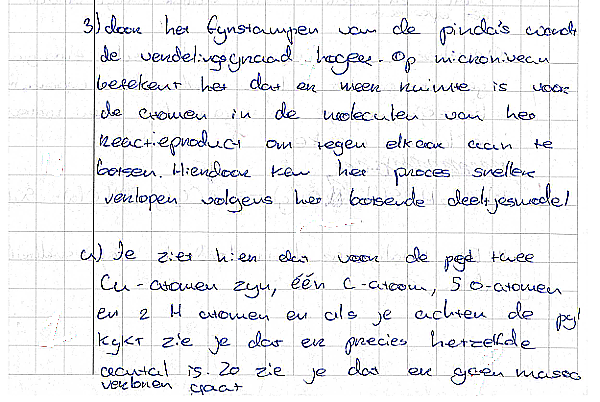 3) door het fynstampen van de pinda's wordt
de verdelingsgraad hoger. Op microniveau
betekent het dat er meer ruimte is voor
de atomen in de moleculen van het
reactieproduct om tegen elkaar aan te
botsen. Hierdoor kan het proces sneller
verlopen volgens het botsende deeltjesmodel
4) Je ziet hier dat voor de pyl twee
Cu-atomen zyn, één C-atoom, 5 O-atomen
en 2 H atomen en als je achter de pyl
kykt zie je dat er precies hetzelfde
aantal is. Zo zie je dat er geen massa
verloren gaat